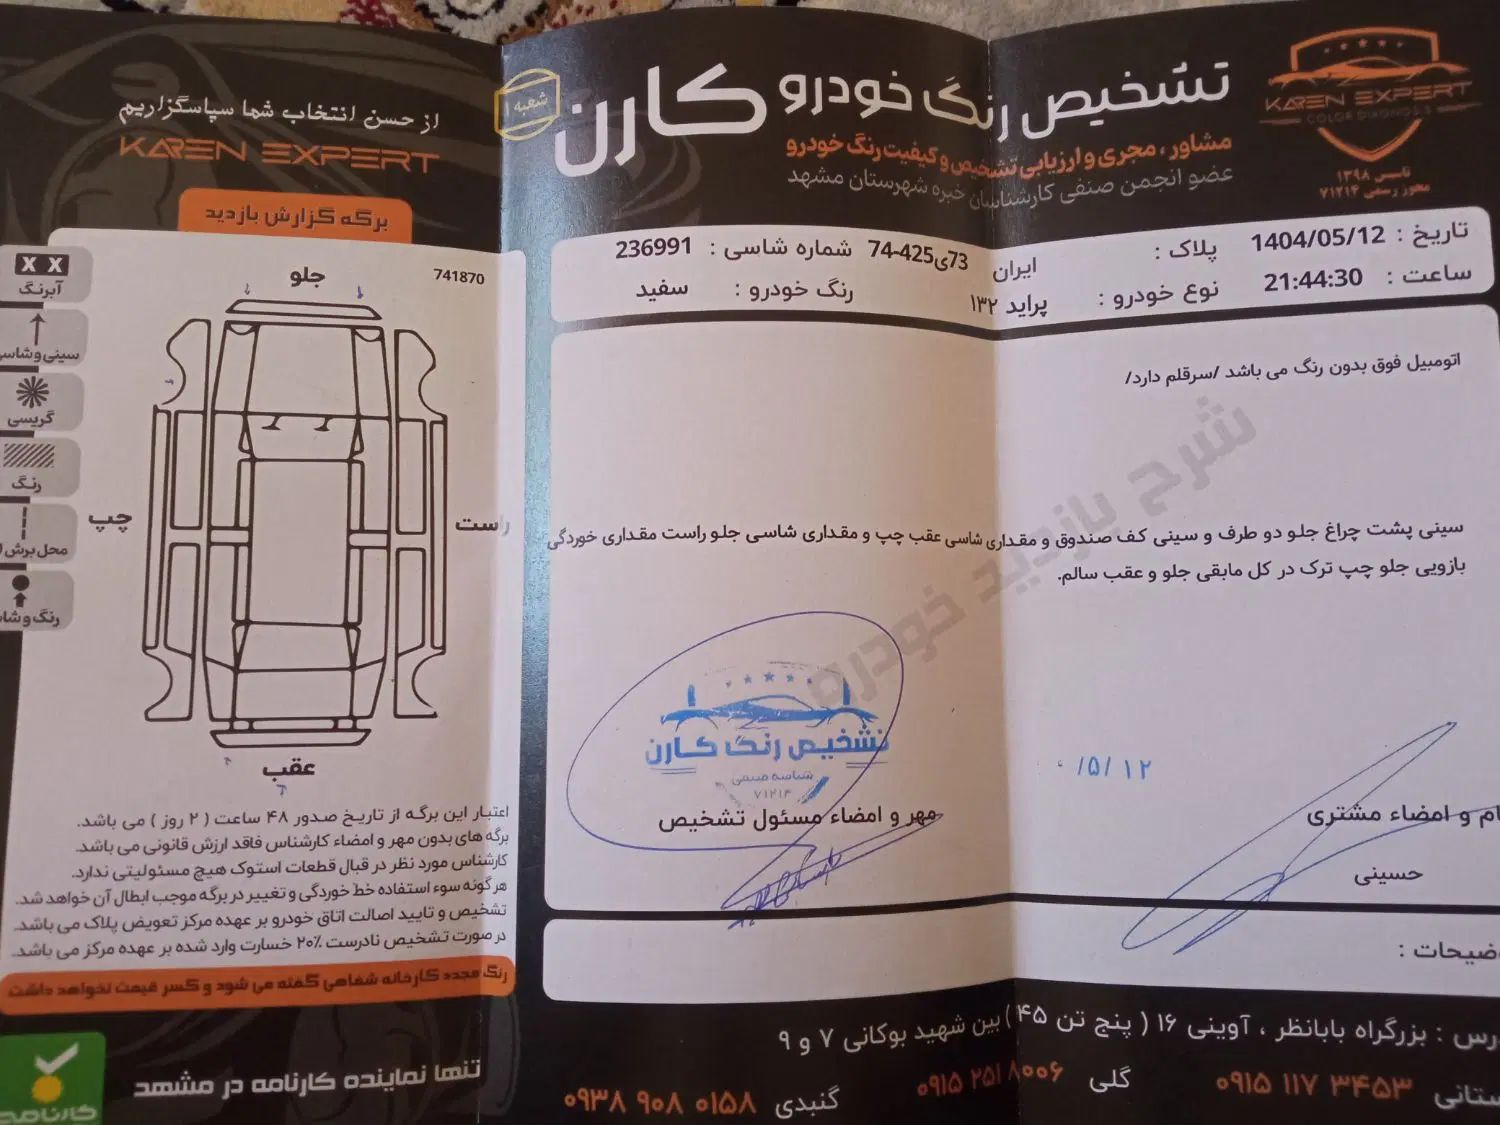 تشخیص رنگ خودرو کارن
شعبه ۱
مشاور ، مجری و ارزیابی تشخیص و کیفیت رنگ خودرو
عضو انجمن صنفی کارشناسان خبره شهرستان مشهد
KAREN EXPERT
COLOR DIAGNOSIS
تاسیس ۱۳۹۸
مجوز رسمی ۷۱۲۱۴
تاریخ : 1404/05/12
پلاک : ایران 73ی425-74
شماره شاسی : 236991
ساعت : 21:44:30
نوع خودرو : پراید ۱۳۲
رنگ خودرو : سفید
اتومبیل فوق بدون رنگ می باشد /سرقلم دارد/
شرح بازدید خودرو
سینی پشت چراغ جلو دو طرف و سینی کف صندوق و مقداری شاسی عقب چپ و مقداری شاسی جلو راست مقداری خوردگی
بازویی جلو چپ ترک در کل مابقی جلو و عقب سالم.
تشخیص رنگ کارن
شناسه صنفی
۷۱۲۱۴
مهر و امضاء مسئول تشخیص
/۵/۱۲
ام و امضاء مشتری
حسینی
وضیحات :
درس : بزرگراه بابانظر ، آوینی ۱۶ ( پنج تن ۴۵ ) بین شهید بوکانی ۷ و ۹
ستانی ۰۹۱۵ ۱۱۷ ۳۴۵۳
گلی ۰۹۱۵ ۲۵۱ ۸۰۰۶
گنبدی ۰۹۳۸ ۹۰۸ ۰۱۵۸
از حسن انتخاب شما سپاسگزاریم
KAREN EXPERT
برگه گزارش بازدید
741870
جلو
راست
چپ
عقب
X X
آبرنگ
سینی و شاسی
گریسی
رنگ
محل برش
رنگ و شا
اعتبار این برگه از تاریخ صدور ۴۸ ساعت ( ۲ روز ) می باشد.
برگه های بدون مهر و امضاء کارشناس فاقد ارزش قانونی می باشد.
کارشناس مورد نظر در قبال قطعات استوک هیچ مسئولیتی ندارد.
هر گونه سوء استفاده خط خوردگی و تغییر در برگه موجب ابطال آن خواهد شد.
تشخیص و تایید اصالت اتاق خودرو بر عهده مرکز تعویض پلاک می باشد.
در صورت تشخیص نادرست ۲۰٪ خسارت وارد شده بر عهده مرکز می باشد.
رنگ مجدد کارخانه شفاهی گفته می شود و کسر قیمت نخواهد داشت
تنها نماینده کارنامه در مشهد
کارنامه